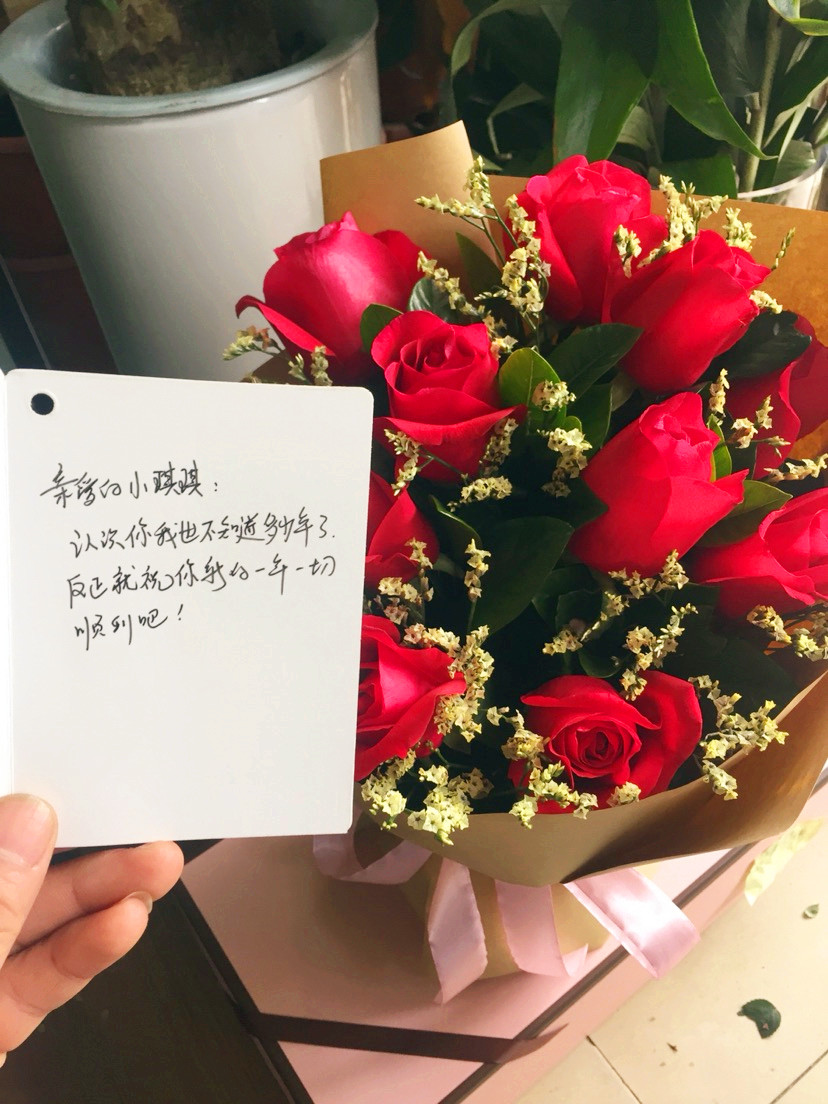 亲爱的小琪琪：
认次你我也不知道多少年了.
反正就祝你新的一年一切
顺利吧！